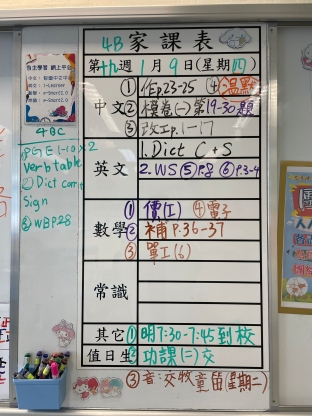 4B家課表
第十九週 1月9日(星期四)
中文
① 作p.23-25 ④溫默
② 模卷(一)第19-30題
③ 改工p.1-17
英文
1. Dict C+S
2. WS ⑤p.8 ⑥p.3-4
數學
① 價(工) ④電子
② 補p.36-37
③ 單工(6)
常識
其它
① 明7:30-7:45到校
值日生
② 功課(二)交
③ 音:交牧童笛(星期二)
4BC
verb table
② Dict corr
sign
③ WB P.28
自主學習 網上平台